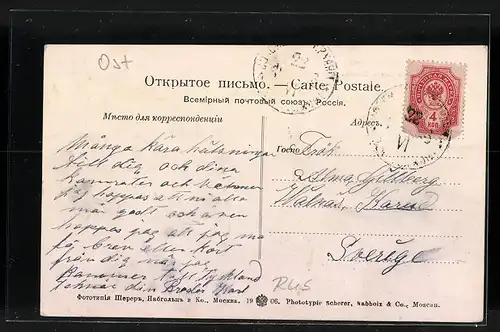 Ost
Открытое письмо. — Carte Postale.
Всемірный почтовый союзъ. Россія.
Мѣсто для корреспонденціи
Адресъ.
4
VI
Många kära hälsningar
till dig och dina
kamrater och
jag hoppas att ni alla
mår godt och även
hoppas jag att jag må
få brev eller kort
från dig när jag
kommer till Tyskland
tecknar din Broder Karl
Госпо Frök
Alma
Sverige
RUS
Фототипія Шереръ, Набгольцъ и Ко., Москва. 19 06. Phototypie Scherer, Nabholz & Co., Moscou.